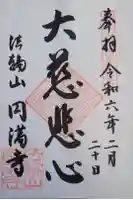 奉拝 令和六年二月
二十日
大慈悲心
法輪山 円満寺